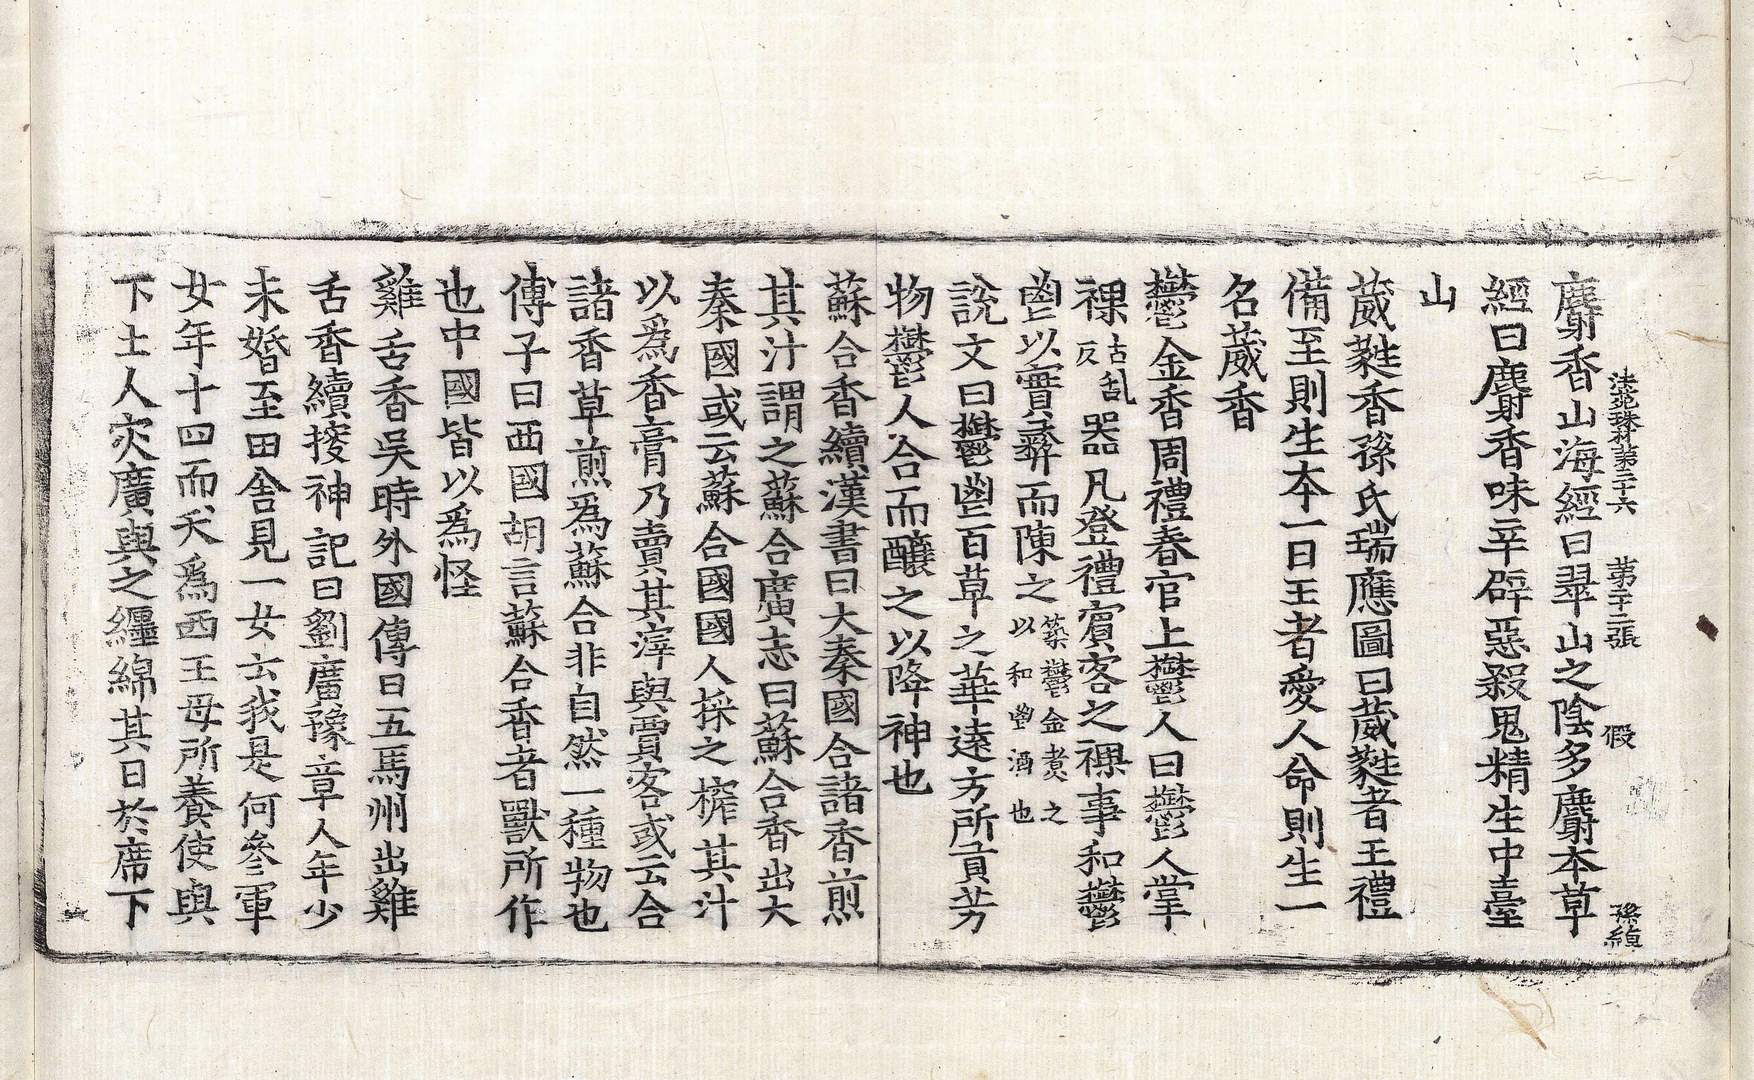 法苑珠林第三十六 第二十二張 假 孫縝
麝香山海經曰翠山之陰多麝本草
經曰麝香味辛辟惡殺鬼精生中臺
山
葳蕤香孫氏瑞應圖曰葳蕤者王禮
備至則生本一曰王者愛人命則生一
名葳香
鬱金香周禮春官上鬱人曰鬱人掌
裸古乱反器凡登禮賓客之裸事和鬱
鬯以實彝而陳之築鬱金煑之以和鬯酒也
說文曰鬱鬯百草之華遠方所貢芳
物鬱人合而釀之以降神也
蘇合香續漢書曰大秦國合諸香煎
其汁謂之蘇合廣志曰蘇合香出大
秦國或云蘇合國國人採之榨其汁
以爲香膏乃賣其滓與賈客或云合
諸香草煎爲蘇合非自然一種物也
傅子曰西國胡言蘇合香者獸所作
也中國皆以爲怪
雞舌香吳時外國傳曰五馬州出雞
舌香續搜神記曰劉廣豫章人年少
未婚至田舍見一女云我是何參軍
女年十四而夭爲西王母所養使與
下土人交廣與之纏綿其日於席下